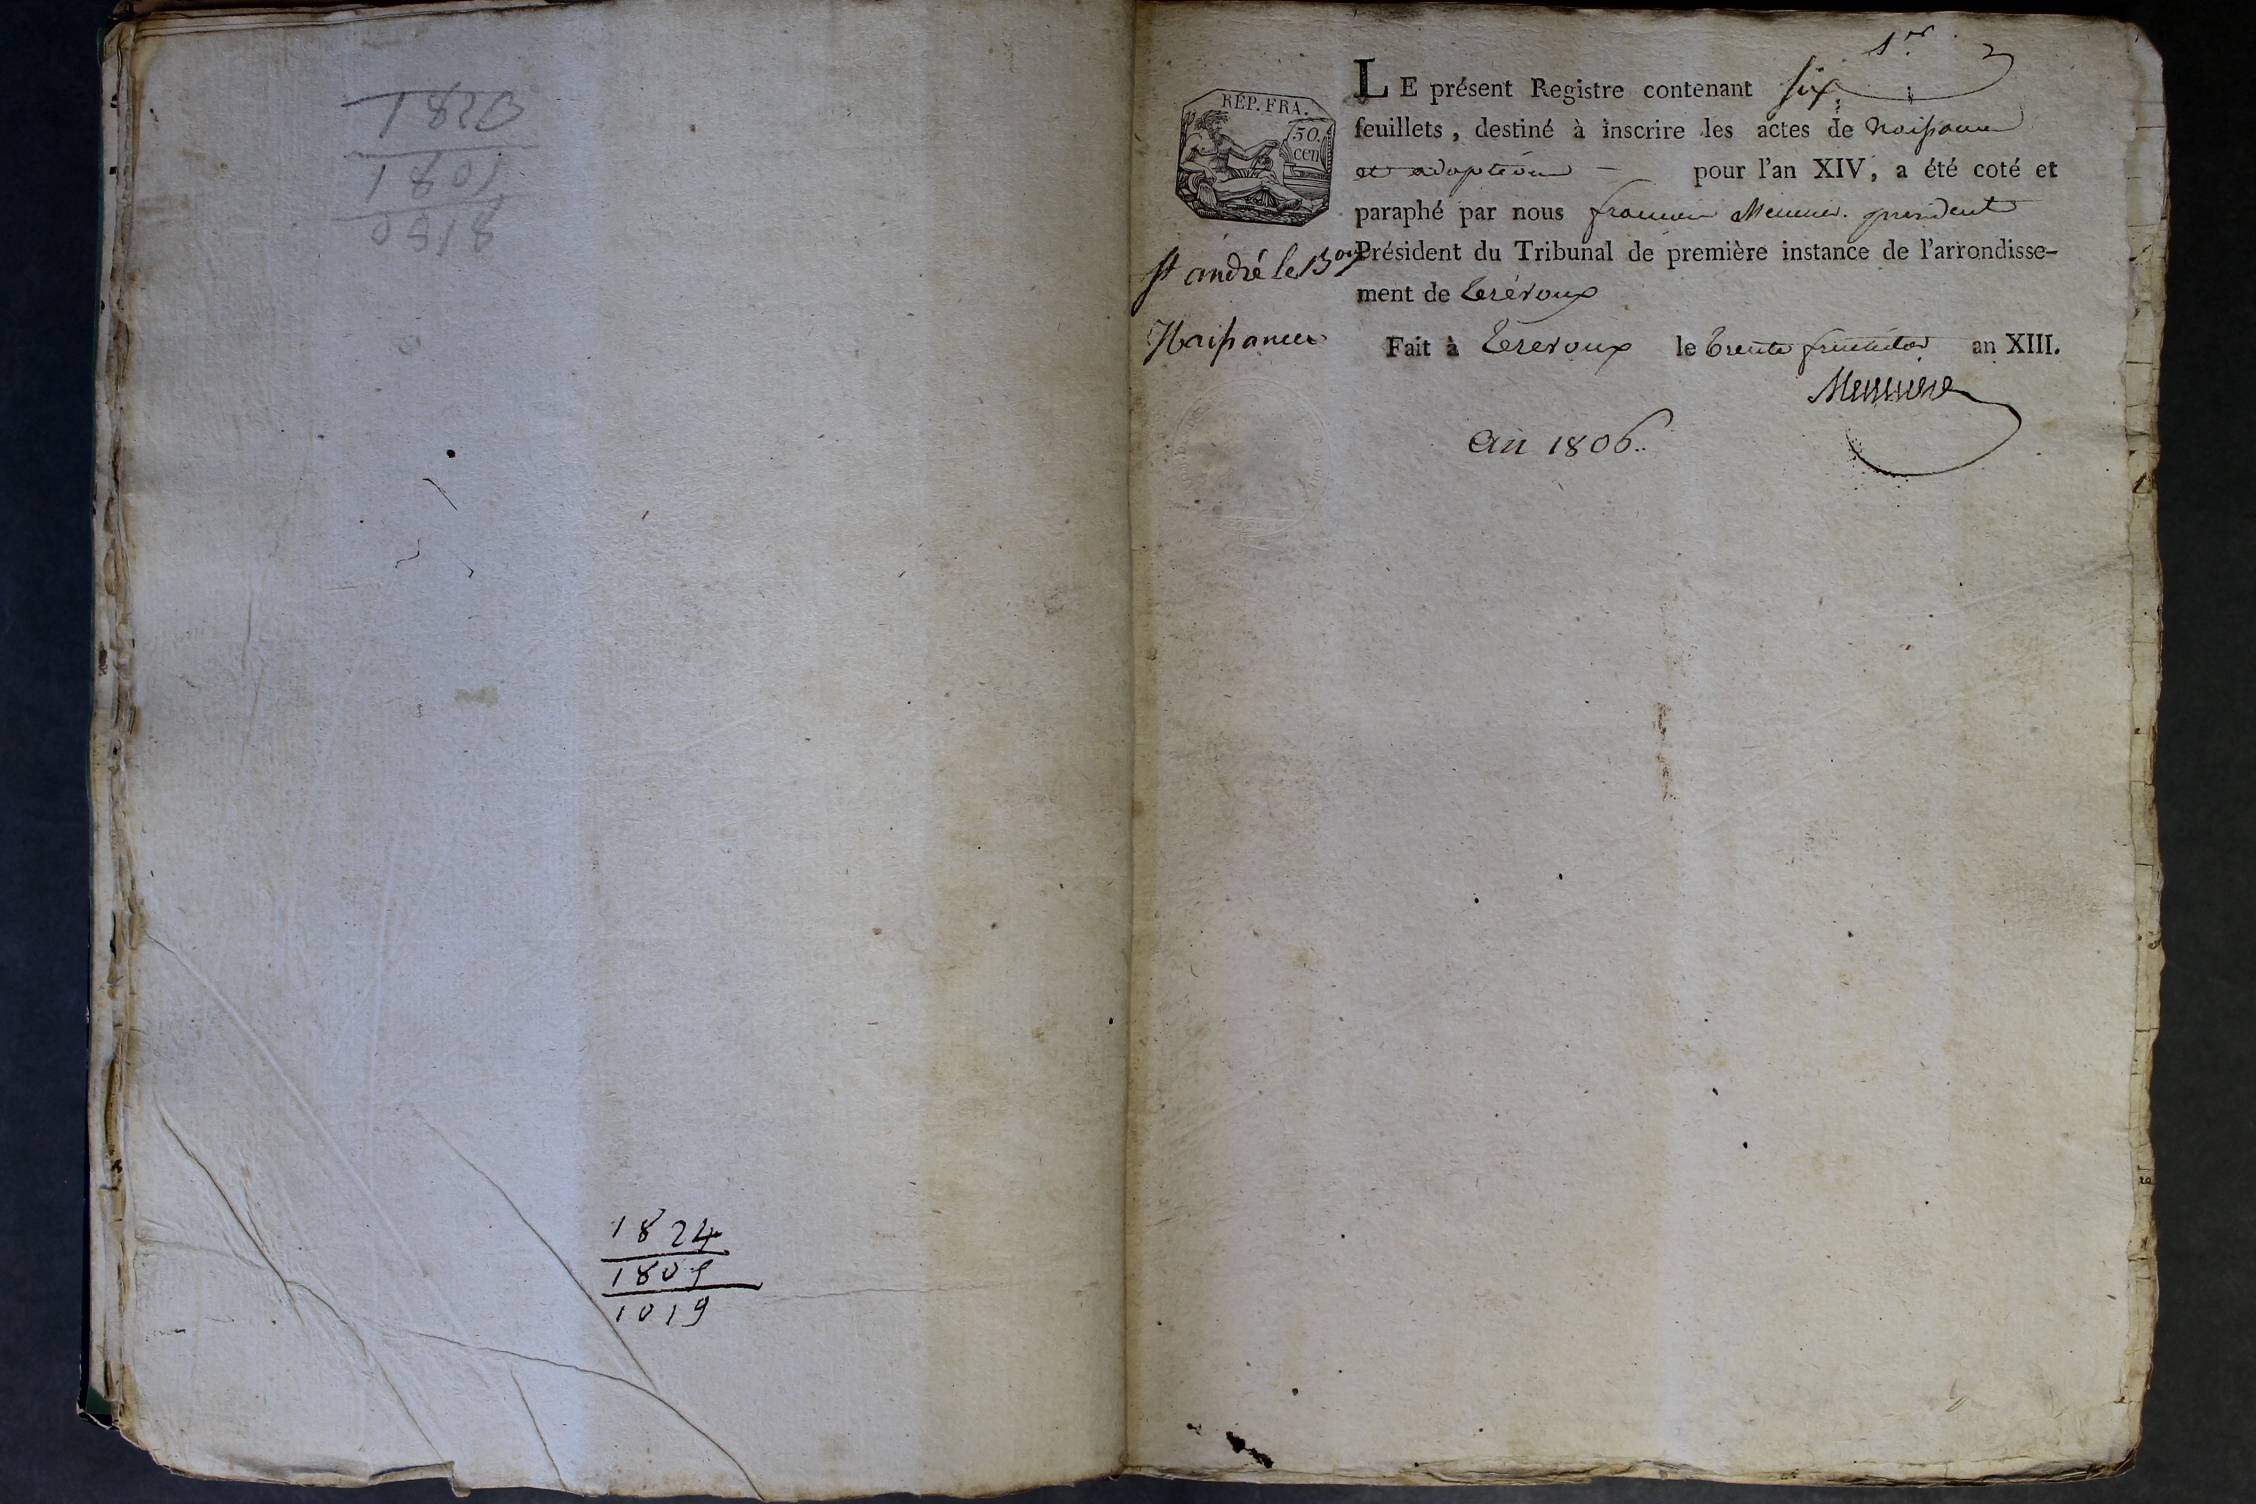 1820
1801
0818
1824
1805
1019
1er
RÉP. FRA.
50.
cen
LE présent Registre contenant six
feuillets, destiné à inscrire les actes de Naissance
et adoption — pour l'an XIV, a été coté et
paraphé par nous françois Meunier président
Président du Tribunal de première instance de l'arrondisse-
ment de Trévoux
St andré le Bouy
Naissances
Fait à Trevoux le trente fructidor an XIII.
an 1806.